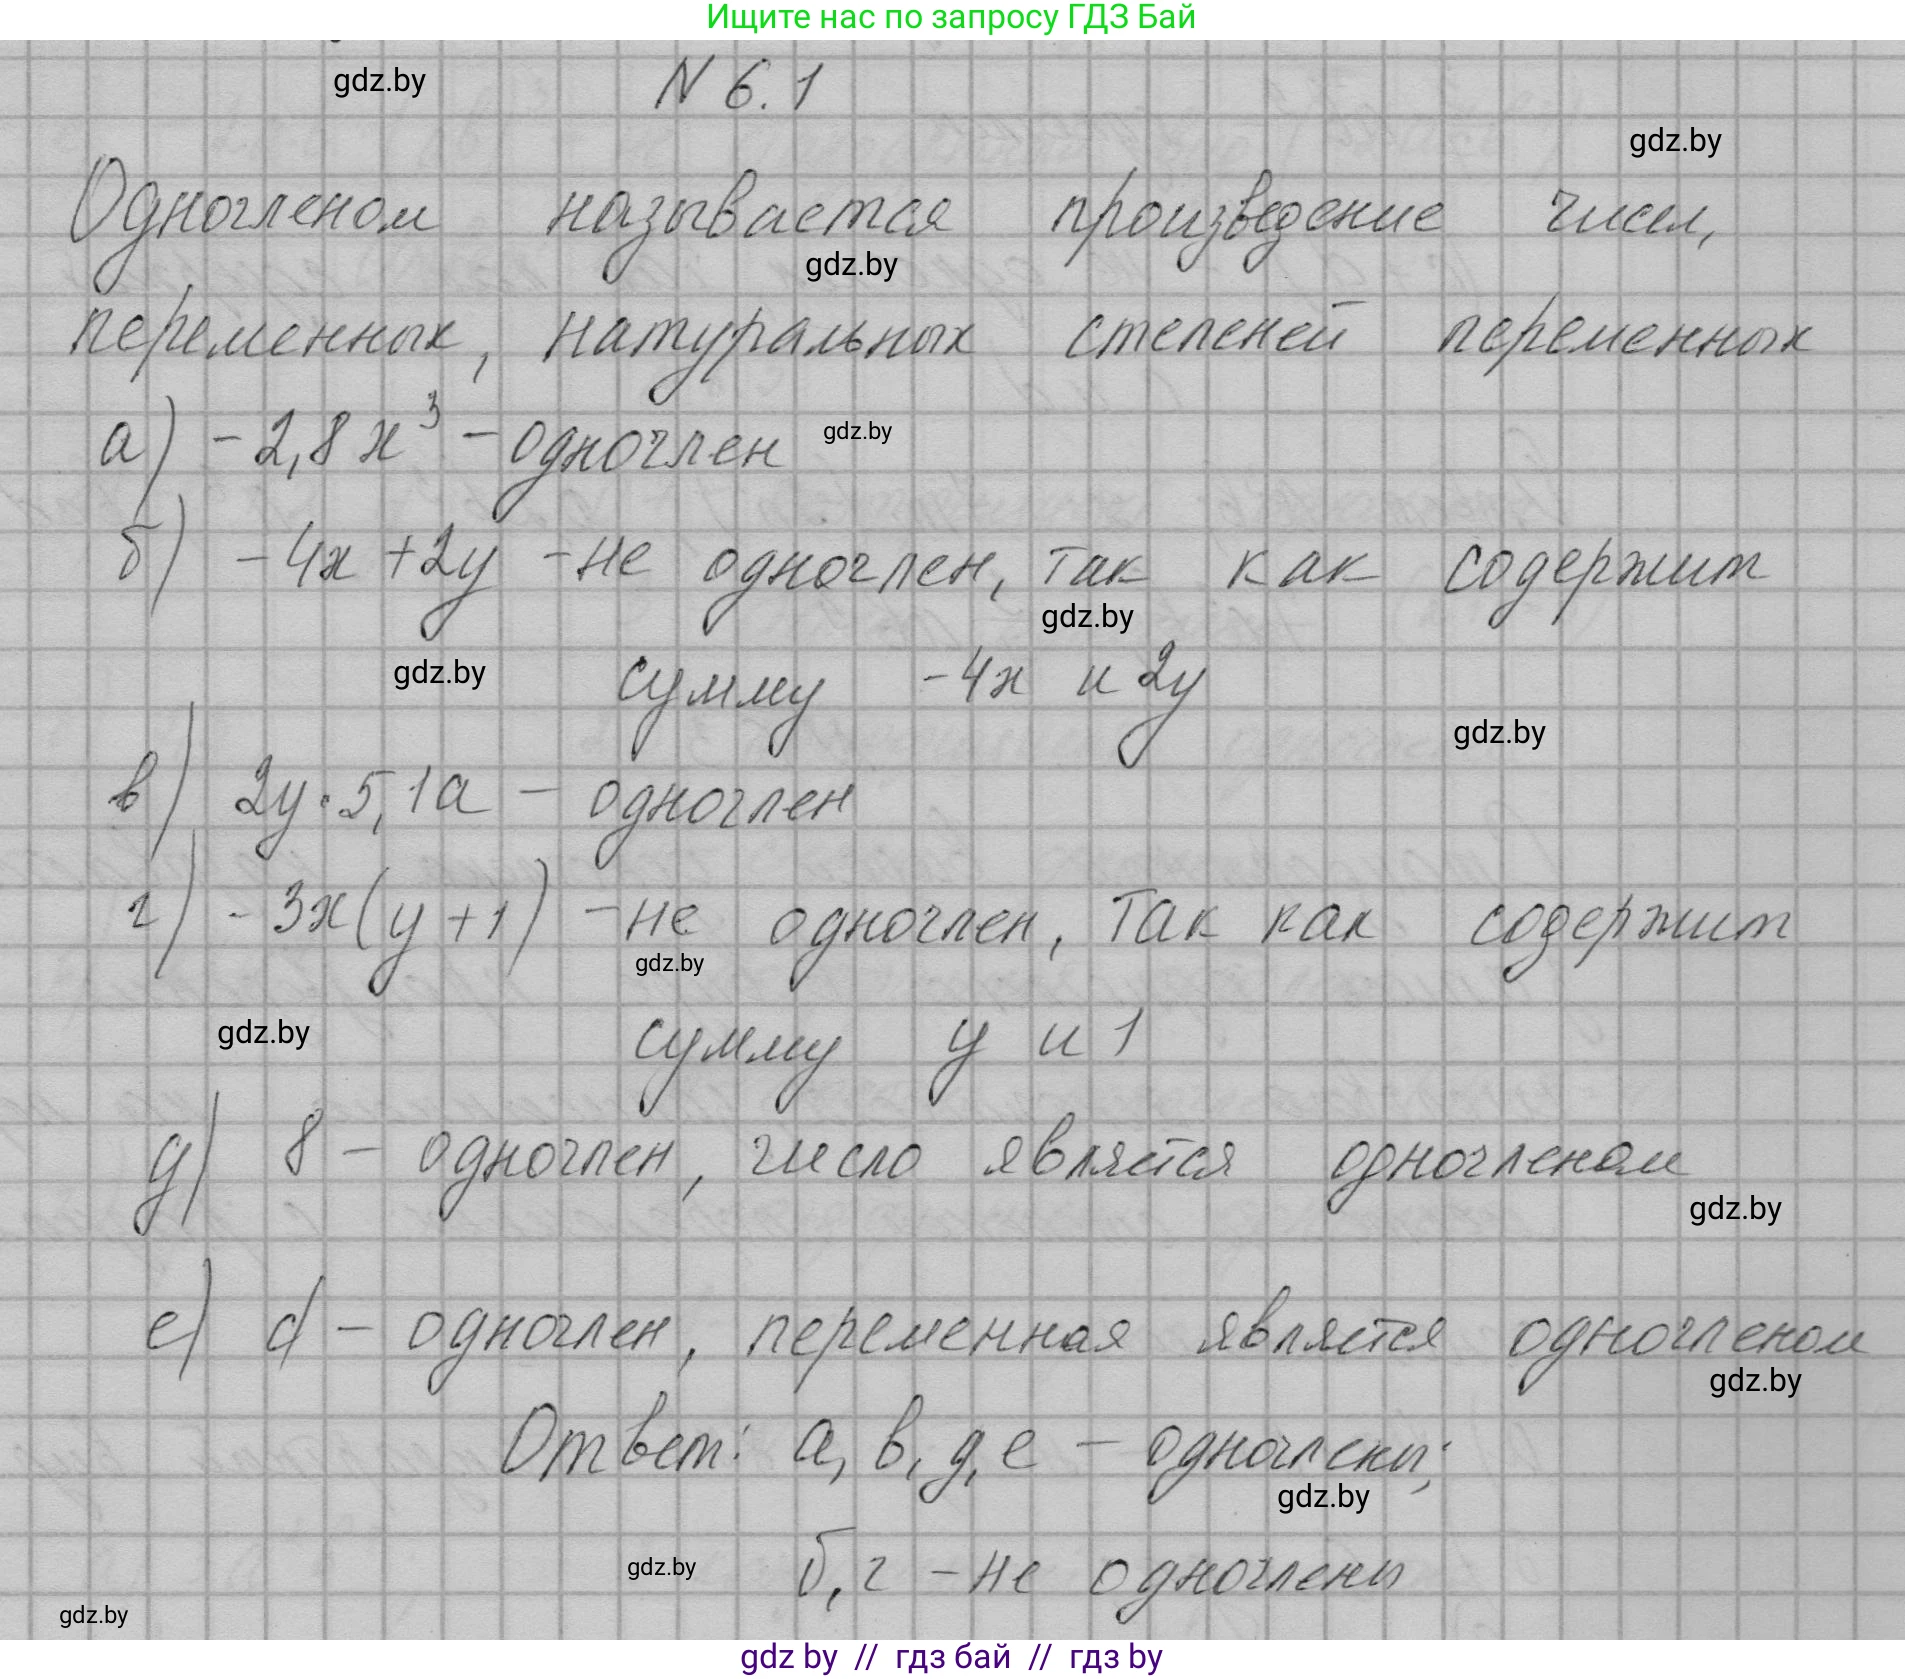 Ищите нас по запросу ГДЗ Бай
gdz.by
N 6.1
gdz.by
Одночленом называется произведение чисел,
gdz.by
переменных, натуральных степеней переменных
а) -2,8x³ - одночлен gdz.by
б) -4x + 2y - не одночлен, так как содержит
gdz.by
gdz.by сумму -4x и 2y
gdz.by
в) 2y · 5,1a - одночлен
г) -3x(y+1) - не одночлен, так как содержит
gdz.by
gdz.by сумму y и 1
д) 8 - одночлен, число является одночленом
gdz.by
е) d - одночлен, переменная является одночленом
gdz.by
Ответ: а, в, д, е - одночлены;
gdz.by
gdz.by б, г - не одночлены
gdz.by
gdz by // гдз бай // гдз by